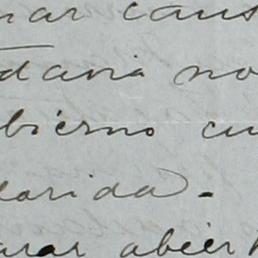 nar caus
davia no
bierno cu
lorida.
arar abier